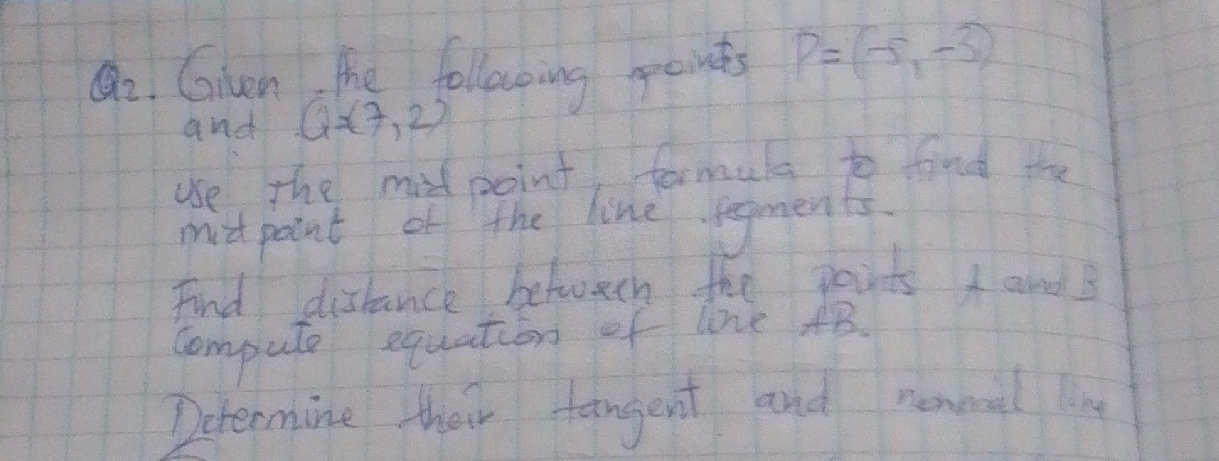 Q2. Given the following points P=(-5, -3)
and Q=(7,2)
use the midpoint formula to find the
midpoint of the line segments.
Find distance between the points A and B
Compute equation of line AB.
Determine their tangent and normal line